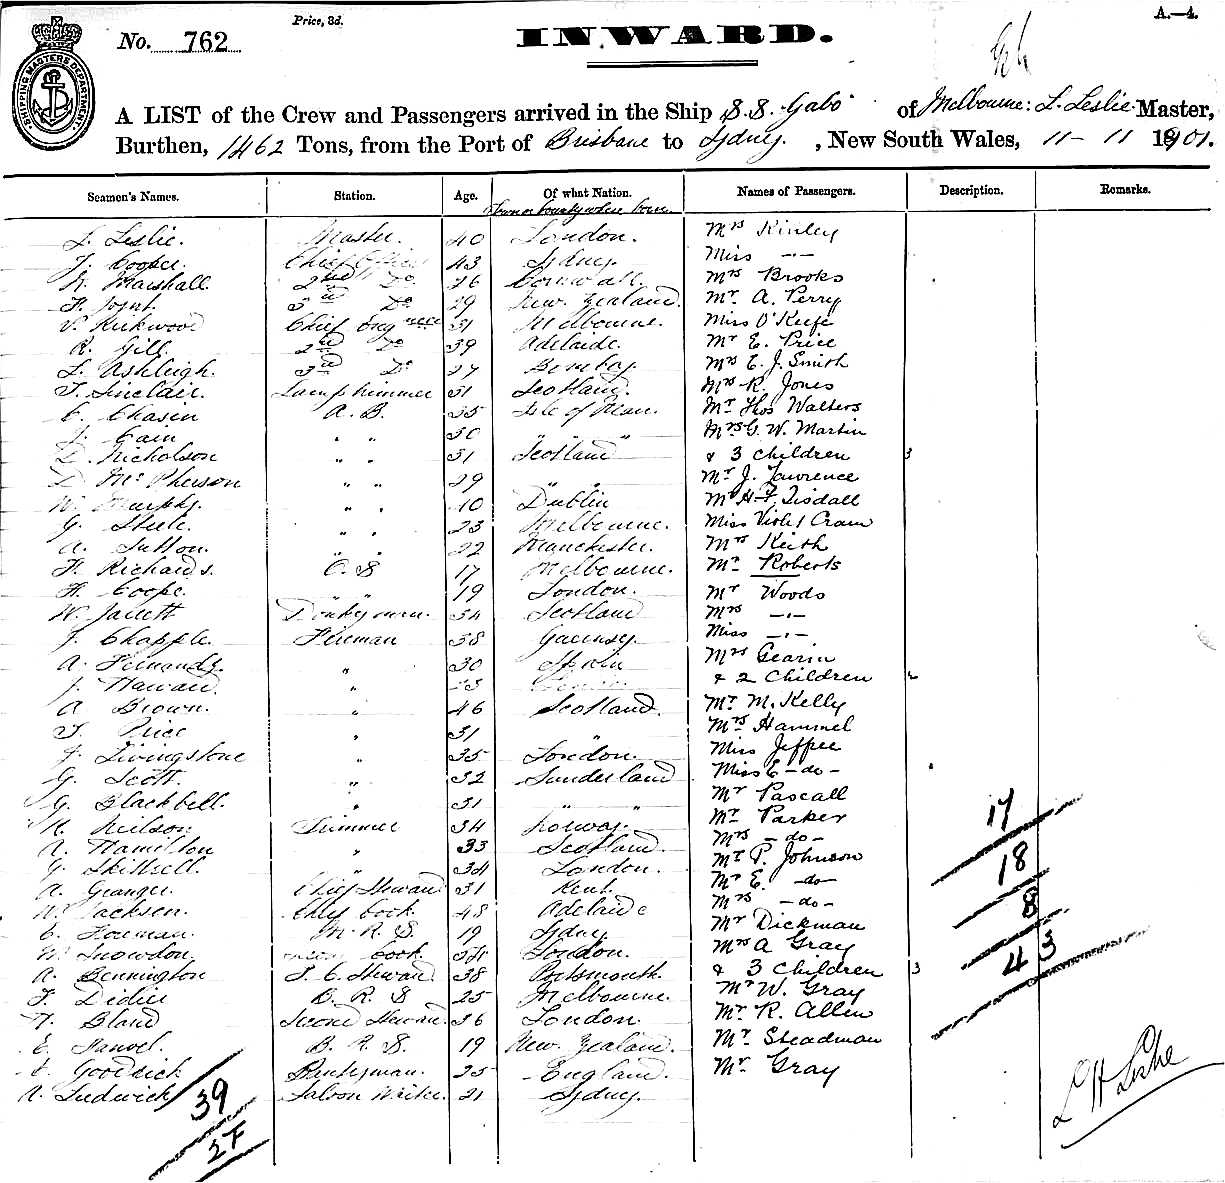 Price, 3d.
A.—4.
No. 762
INWARD.
SHIPPING MASTERS DEPARTMENT
A LIST of the Crew and Passengers arrived in the Ship S.S. Gabo of Melbourne: L. Leslie Master,
Burthen, 1462 Tons, from the Port of Brisbane to Sydney. , New South Wales, 11 - 11 1901.
Seamen's Names. Station. Age. Of what Nation. Names of Passengers. Description. Remarks.
Town or County where born.
L. Leslie. Master. 40 London. Mrs Kinley
J. Cooper. Chief Officer 43 Sydney. Miss -·-
Marshall 2nd Do 26 Cornwall. Mrs Brooks
Do 29 New Zealand. Mr. A. Perry
Kirkwood Chief Engineer 31 Melbourne. Miss O'Keefe
R. Gill. 2nd Do 39 Adelaide. Mr E. Price
L. Ashleigh. 3rd Do 27 Bombay. Mrs E. J. Smith
J. Sinclair. Lamptrimmer 31 Scotland. Mrs R. Jones
C. Chasin A. B. 35 Isle of Man. Mr Thos Walters
J. Cain " " 30 " " " Mrs G. W. Martin
D. Nicholson " " 31 Scotland & 3 Children 3
D. McPherson " " 29 " " Mr. J. Lawrence
W. Murphy. " " Dublin Mr H. F. Tisdall
G. Steele. " " 23 Melbourne. Miss Violet Cram
A. Sutton. " " 22 Manchester. Mrs Keith
F. Richards. O. S 17 Melbourne. Mr. Roberts
H. Coope. " " 19 London. Mr Woods
W. Jarrett Donkeyman. 34 Scotland Mrs -·-
J. Chapple. Fireman 38 Guernsey. Miss -·-
A. Fernandz. " 30 Spain Mrs Gearin
J. " & 2 Children 2
A Brown. " 46 Scotland. Mr. M. Kelly
J. Price " 31 " Mrs Hammel
J. Livingstone " 35 London. Miss Jeffree
G. Scott. " 32 Sunderland Miss E - do -
G. Blackbell. " 31 " " Mr Pascall
Neilson Trimmer 34 Norway. Mr Parker
A. Hamilton " 33 Scotland. Mrs - do -
G. Skittrell. " 34 London. Mr P. Johnson
A. Granger. Chief Steward 31 Kent. Mr E. - do -
Jackson. Chief Cook. 48 Adelaide Mrs - do -
M. R. S. 19 Sydney Mr Dickman
Snowdon Cook. London. Mrs A Gray
A. Bennington S. C. Steward 38 Portsmouth. & 3 Children 3
F. Didier B. R. S 25 Melbourne. Mr W. Gray
Bland Second Steward. 36 London. Mr R. Allen
E. B. R. S. 19 New Zealand. Mr. Steadman
Goodrick Pantryman. 25 England. Mr Gray
A. Ludwick Saloon Waiter. 21 Sydney.
17
18
8
43
39
2F
L H Leslie